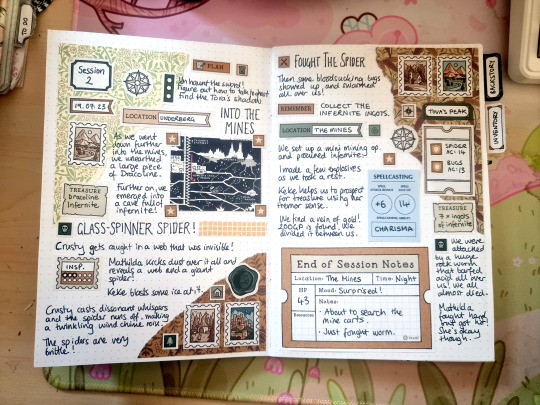 Session
2
PLAN
Figure out how to
find the Tora's shadow
19.07.23
LOCATION UNDERBERG
INTO THE
MINES
As we went
down further
into the mines,
we unearthed
a large piece
of Dracoline.
TREASURE
Dracoline
Infernite
Further on, we
emerged into
a cave full of
infernite!
GLASS-SPINNER SPIDER!
Crusty gets caught in a web that was invisible!
INSP.
Mathilda kicks dust over it all and
reveals a web and a giant
spider!
Keke blasts some ice at it.
Crusty casts dissonant whispers
and the spider runs off, making
a twinkling wind chime noise.
The spiders are very
brittle!
FOUGHT THE SPIDER
Then some bloodsucking bugs
showed up and swarmed
all over us!
REMEMBER COLLECT THE
INFERNITE INGOTS.
LOCATION THE MINES
We set up a mini mining op.
and proclaimed infernite!
I made a few explosives
as we took a rest.
Keke helps us to prospect
for treasure using her
tremor sense.
We find a vein of gold!
200GP is found. We
divided it between us.
SPELLCASTING
+6
14
CHARISMA
TORA'S PEAK
SPIDER
AC:14
BUGS
AC:13
TREASURE
7 x ingots
of infernite
BACKSTORY
INVENTORY
End of Session Notes
Location: The Mines Time: Night
HP
43
Mood: Surprised!
Notes:
Resources
• About to search the
mine carts.
• Just fought worm.
We were
attacked
by a huge
rock worm
that barfed
acid all over
us! We all
almost died.
Mathilda
fought hard
but got hit!
She's okay
though.